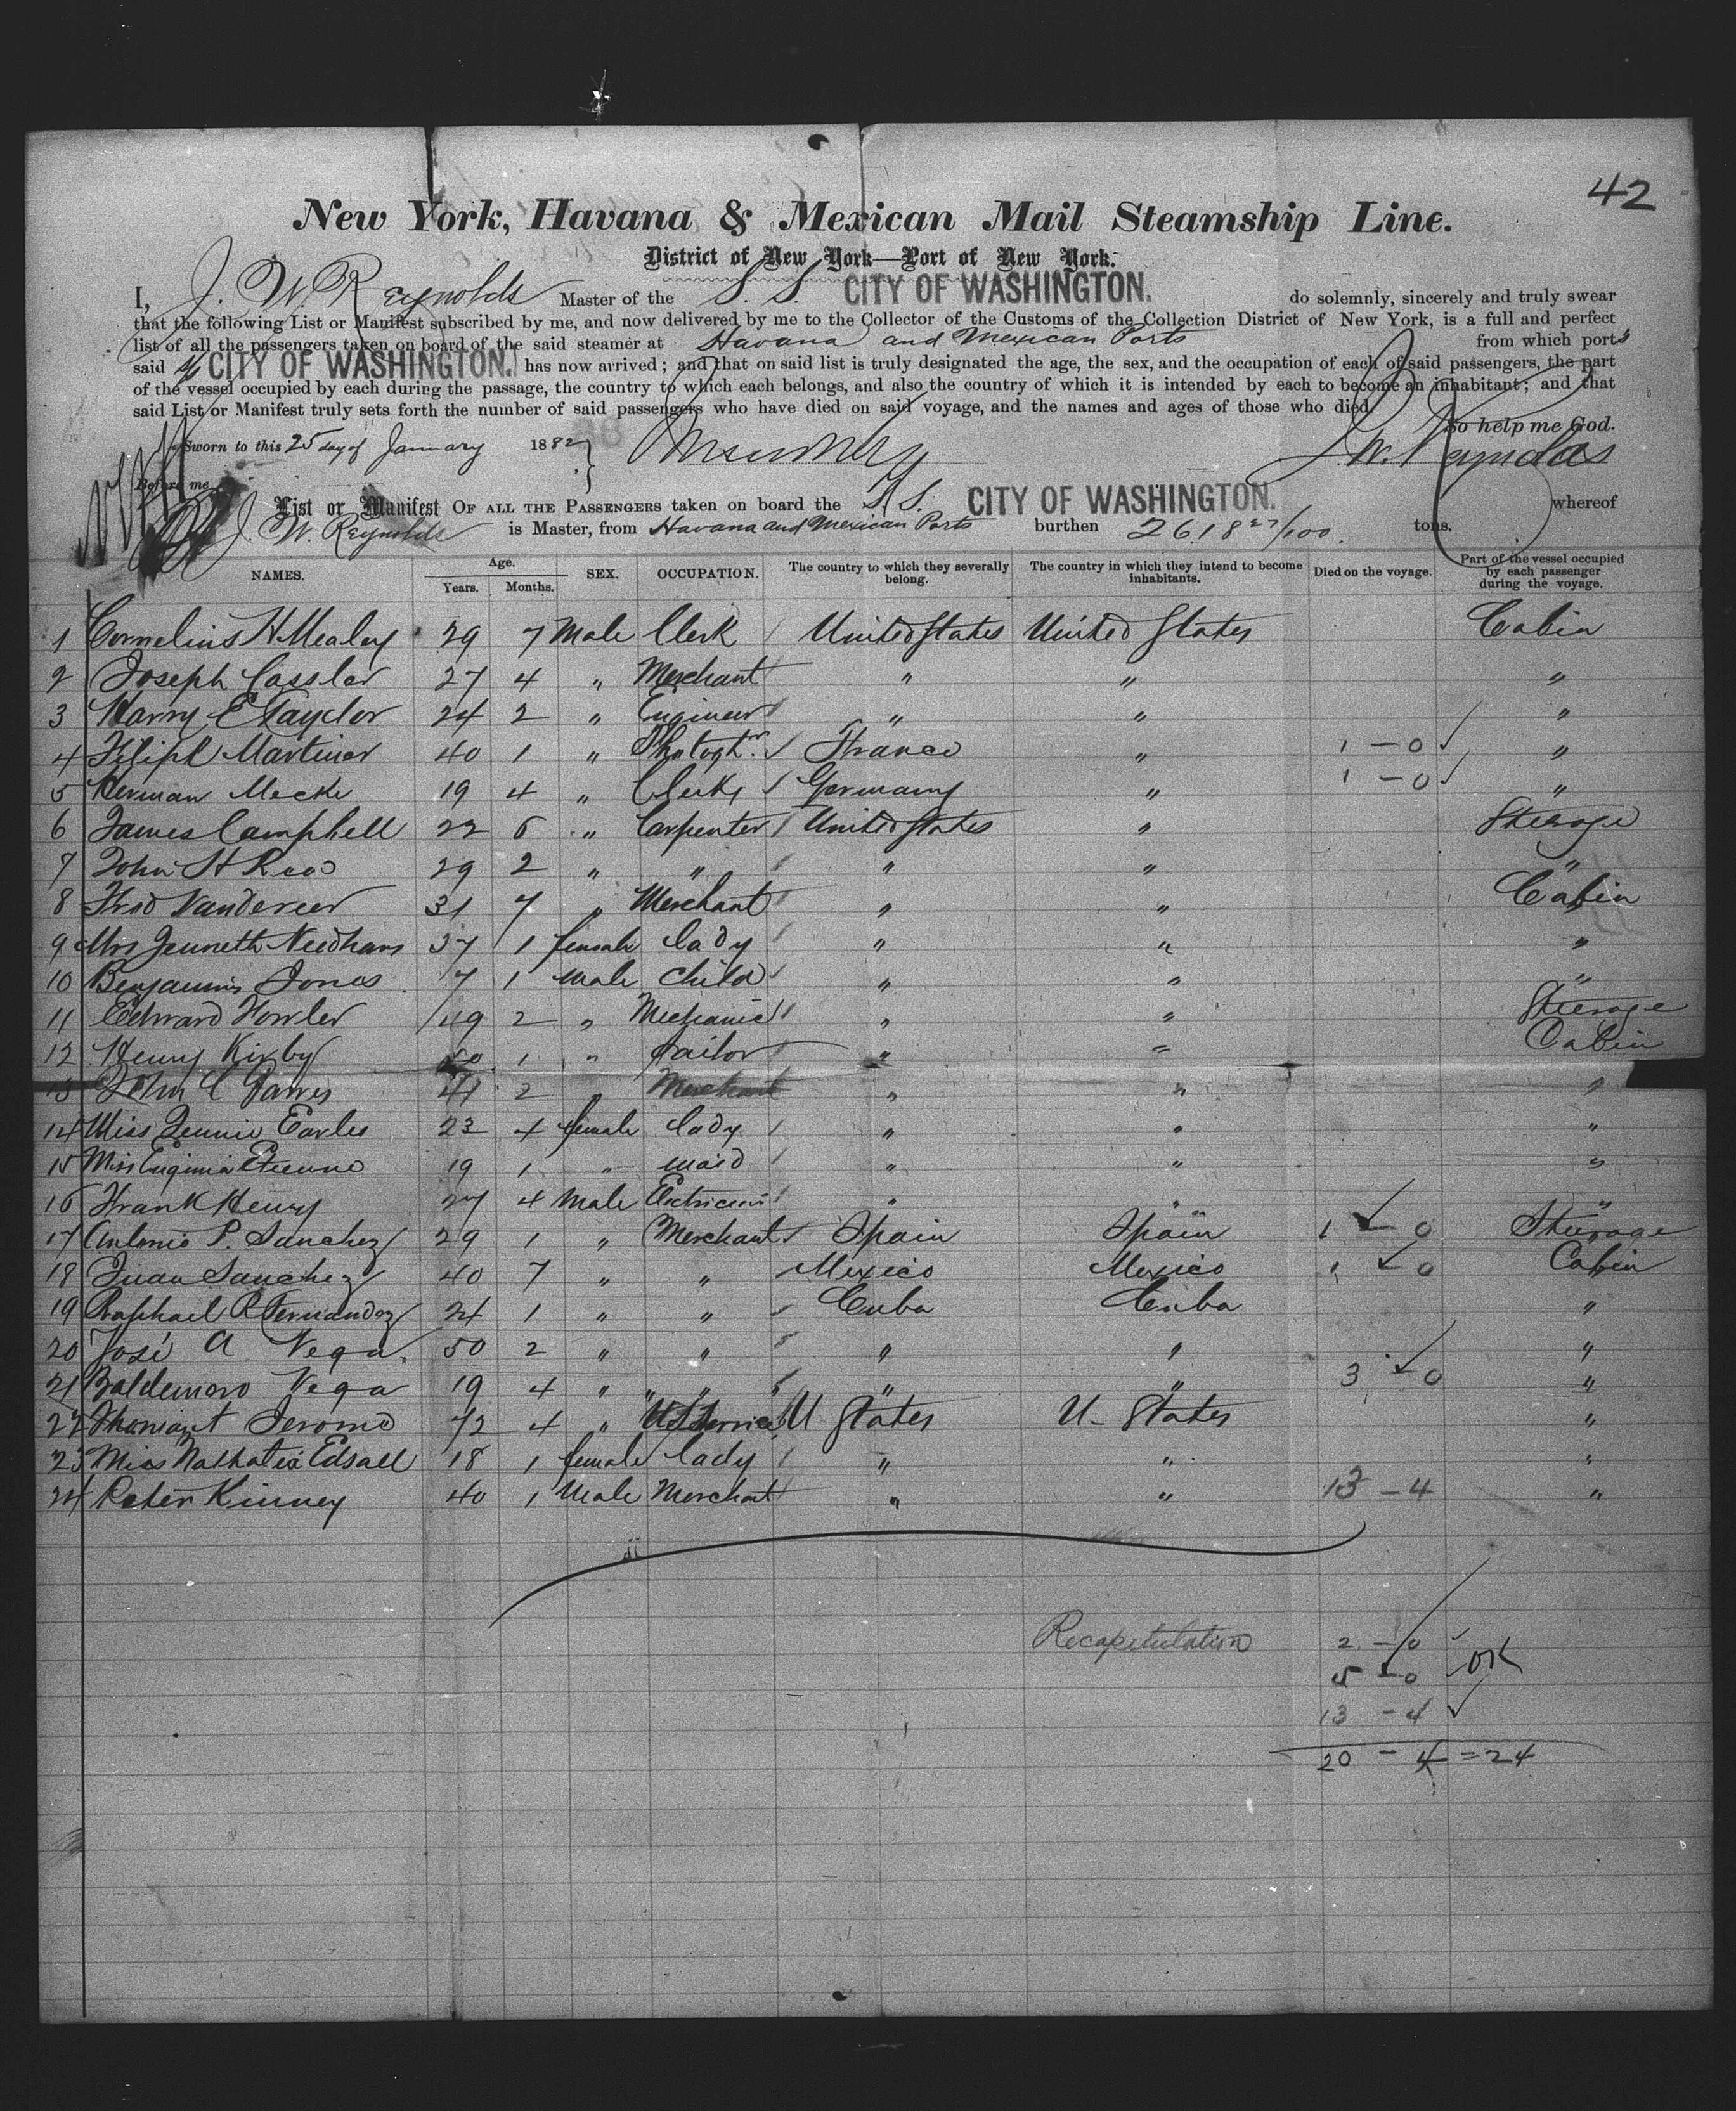 42
New York, Havana & Mexican Mail Steamship Line.
District of New York—Port of New York.
I, J. W. Reynolds Master of the S. S. CITY OF WASHINGTON. do solemnly, sincerely and truly swear
that the following List or Manifest subscribed by me, and now delivered by me to the Collector of the Customs of the Collection District of New York, is a full and perfect
list of all the passengers taken on board of the said steamer at Havana and Mexican Ports from which ports
said CITY OF WASHINGTON. has now arrived; and that on said list is truly designated the age, the sex, and the occupation of each of said passengers, the part
of the vessel occupied by each during the passage, the country to which each belongs, and also the country of which it is intended by each to become an inhabitant; and that
said List or Manifest truly sets forth the number of said passengers who have died on said voyage, and the names and ages of those who died.
So help me God.
Sworn to this 25 day of January 1882 J. W. Reynolds
Before me
List or Manifest OF ALL THE PASSENGERS taken on board the S. S. CITY OF WASHINGTON. whereof
J. W. Reynolds is Master, from Havana and Mexican Ports burthen 2618 27/100. tons.
NAMES. Age. Years. Months. SEX. OCCUPATION. The country to which they severally belong. The country in which they intend to become inhabitants. Died on the voyage. Part of the vessel occupied by each passenger during the voyage.
1 Cornelius H Mealey 29 7 Male Clerk United States United States Cabin
2 Joseph Cassler 27 4 " Merchant " " "
3 Harry E Taylor 24 2 " Engineer " " "
4 Martiner 40 1 " Photoghr. France " 1 - 0 "
5 Herman Mecke 19 4 " Clerk Germany " 1 - 0 "
6 James Campbell 22 6 " Carpenter United States " Steerage
7 John H 29 2 " " " " "
8 Fred Vanderveer 31 7 " Merchant " " Cabin
9 Mrs Jenneth Needham 37 1 female Lady " " "
10 Benjamin Jones 7 1 male Child " " "
11 Edward Fowler 49 2 " Mechanic " " Steerage
12 Henry Kirby 1 " Sailor " " Cabin
13 John C 41 2 Merchant " " "
14 Miss Jennie Earles 23 4 female lady " " "
15 Miss Etienne 19 1 " maid " " "
16 Frank Henry 27 4 Male Electrician " " "
17 Antonio P. Sanchez 29 1 " Merchant Spain Spain 1 - 0 Steerage
18 Juan Sanchez 40 7 " " Mexico Mexico 1 - 0 Cabin
19 Raphael R Fernandez 24 1 " " Cuba Cuba "
20 José A Vega. 50 2 " " " " "
21 Baldemoro Vega 19 4 " " " " 3 - 0 "
22 Jerome 72 4 " U States U. States "
23 Miss Nathalia Edsall 18 1 female lady " " "
24 Peter Kinney 40 1 Male Merchant " " 13 - 4 "
Recapetulation 2 - 0
5 - 0 OK
13 - 4
20 - 4 = 24